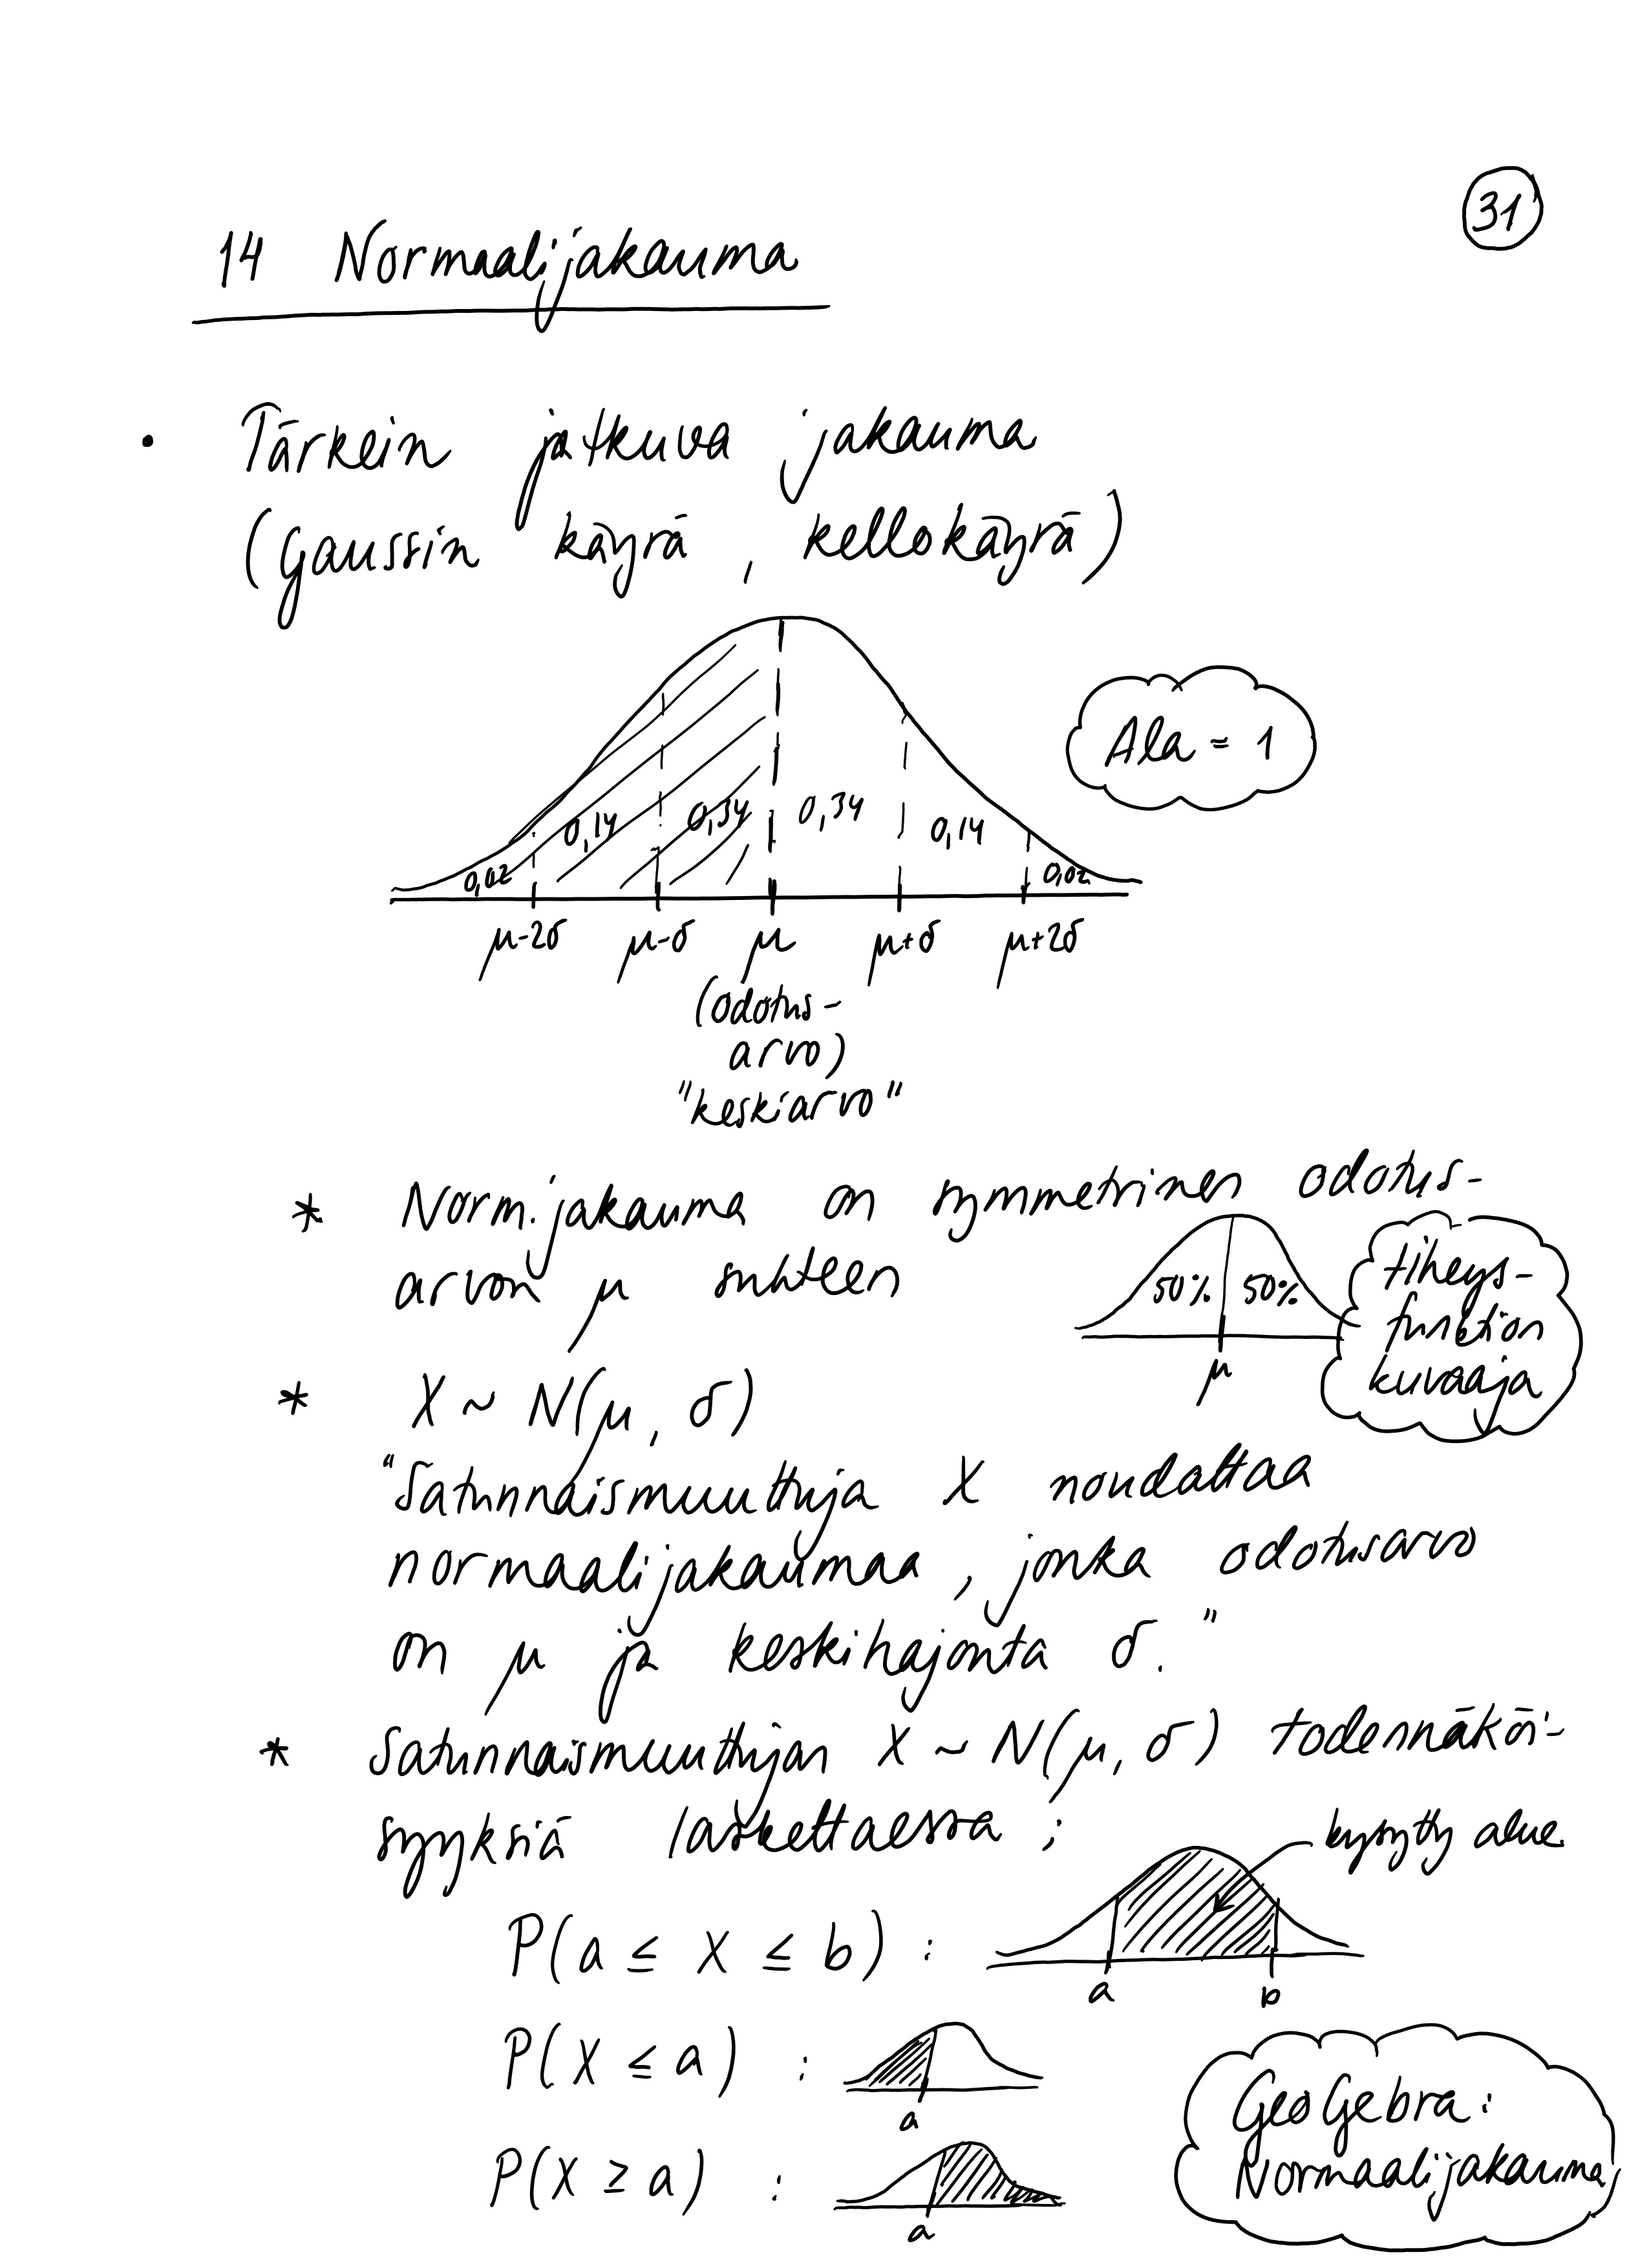 31
14 Normaalijakauma
• Tärkein jatkuva jakauma
(Gaussin käyrä, kellokäyrä)
Ala = 1
0,02 0,14 0,34 0,34 0,14 0,02
μ-2σ μ-σ μ μ+σ μ+2σ
(odotus-
arvo)
"keskiarvo"
* Norm.jakauma on symmetrinen odotus-
arvon μ suhteen
50% 50%
μ
tiheys-
funktion
kuvaaja
* X ~ N(μ, σ)
"Satunnaismuuttuja X noudattaa
normaalijakaumaa, jonka odotusarvo
on μ ja keskihajonta σ."
* Satunnaismuuttujan X ~ N(μ, σ) todennäköi-
syyksiä laskettaessa :
kysytty alue
P(a ≤ X ≤ b) :
a b
P(X ≤ a) :
a
P(X ≥ a) :
a
GeoGebra:
Normaalijakauma